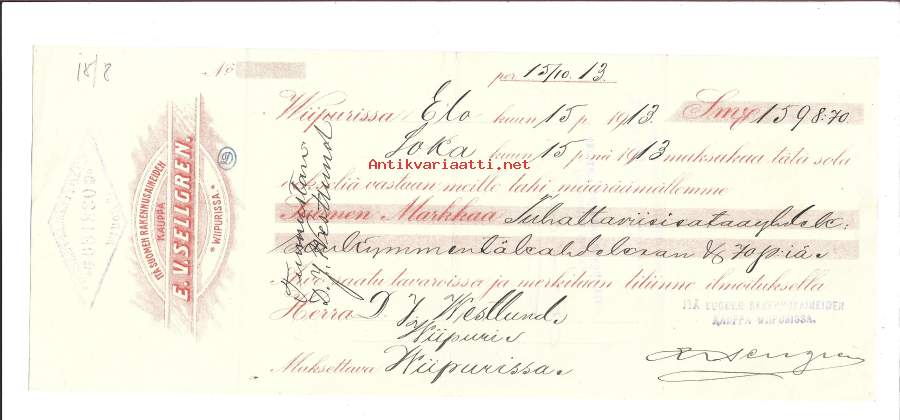 18/8
No
per 15/10.13.
Wiipurissa Elo kuun 15 p. 1913. Smk 1598:70
Loka kuun 15 p:nä 1913 maksakaa tätä sola
vastaan meille tahi määräämällemme
Suomen Markkaa Tuhattaviisisataayhdek:
sänkymmentäkahdeksan & 70 p:iä
saatu tavaroissa ja merkitkään tiliinne ilmoituksella
Herra D. J. Westlund.
Wiipuri.
Maksettava Wiipurissa.
D. J. Westlund
ITÄ SUOMEN RAKENNUSAINEIDEN
KAUPPA
E. V. SELLGREN.
* WIIPURISSA *
ITÄ SUOMEN RAKENNUSAINEIDEN
KAUPPA WIIPURISSA.
Antikvariaatti.net